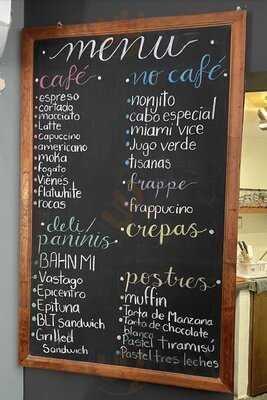 menu
café
espreso
cortado
macciato
Latte
Capuccino
americano
moka
fogato
Vienés
flatwhite
rocas
deli
paninis
BAHN MI
Vastago
Epicentro
Epituna
BLT Sandwich
Grilled
Sandwich
no café
nonjito
cabo especial
miami vice
Jugo verde
tisanas
frappe
frappucino
crepas
postres
muffin
Tarta de Manzana
Tarta de chocolate
blanco
Pastel tiramisú
Pastel tres leches